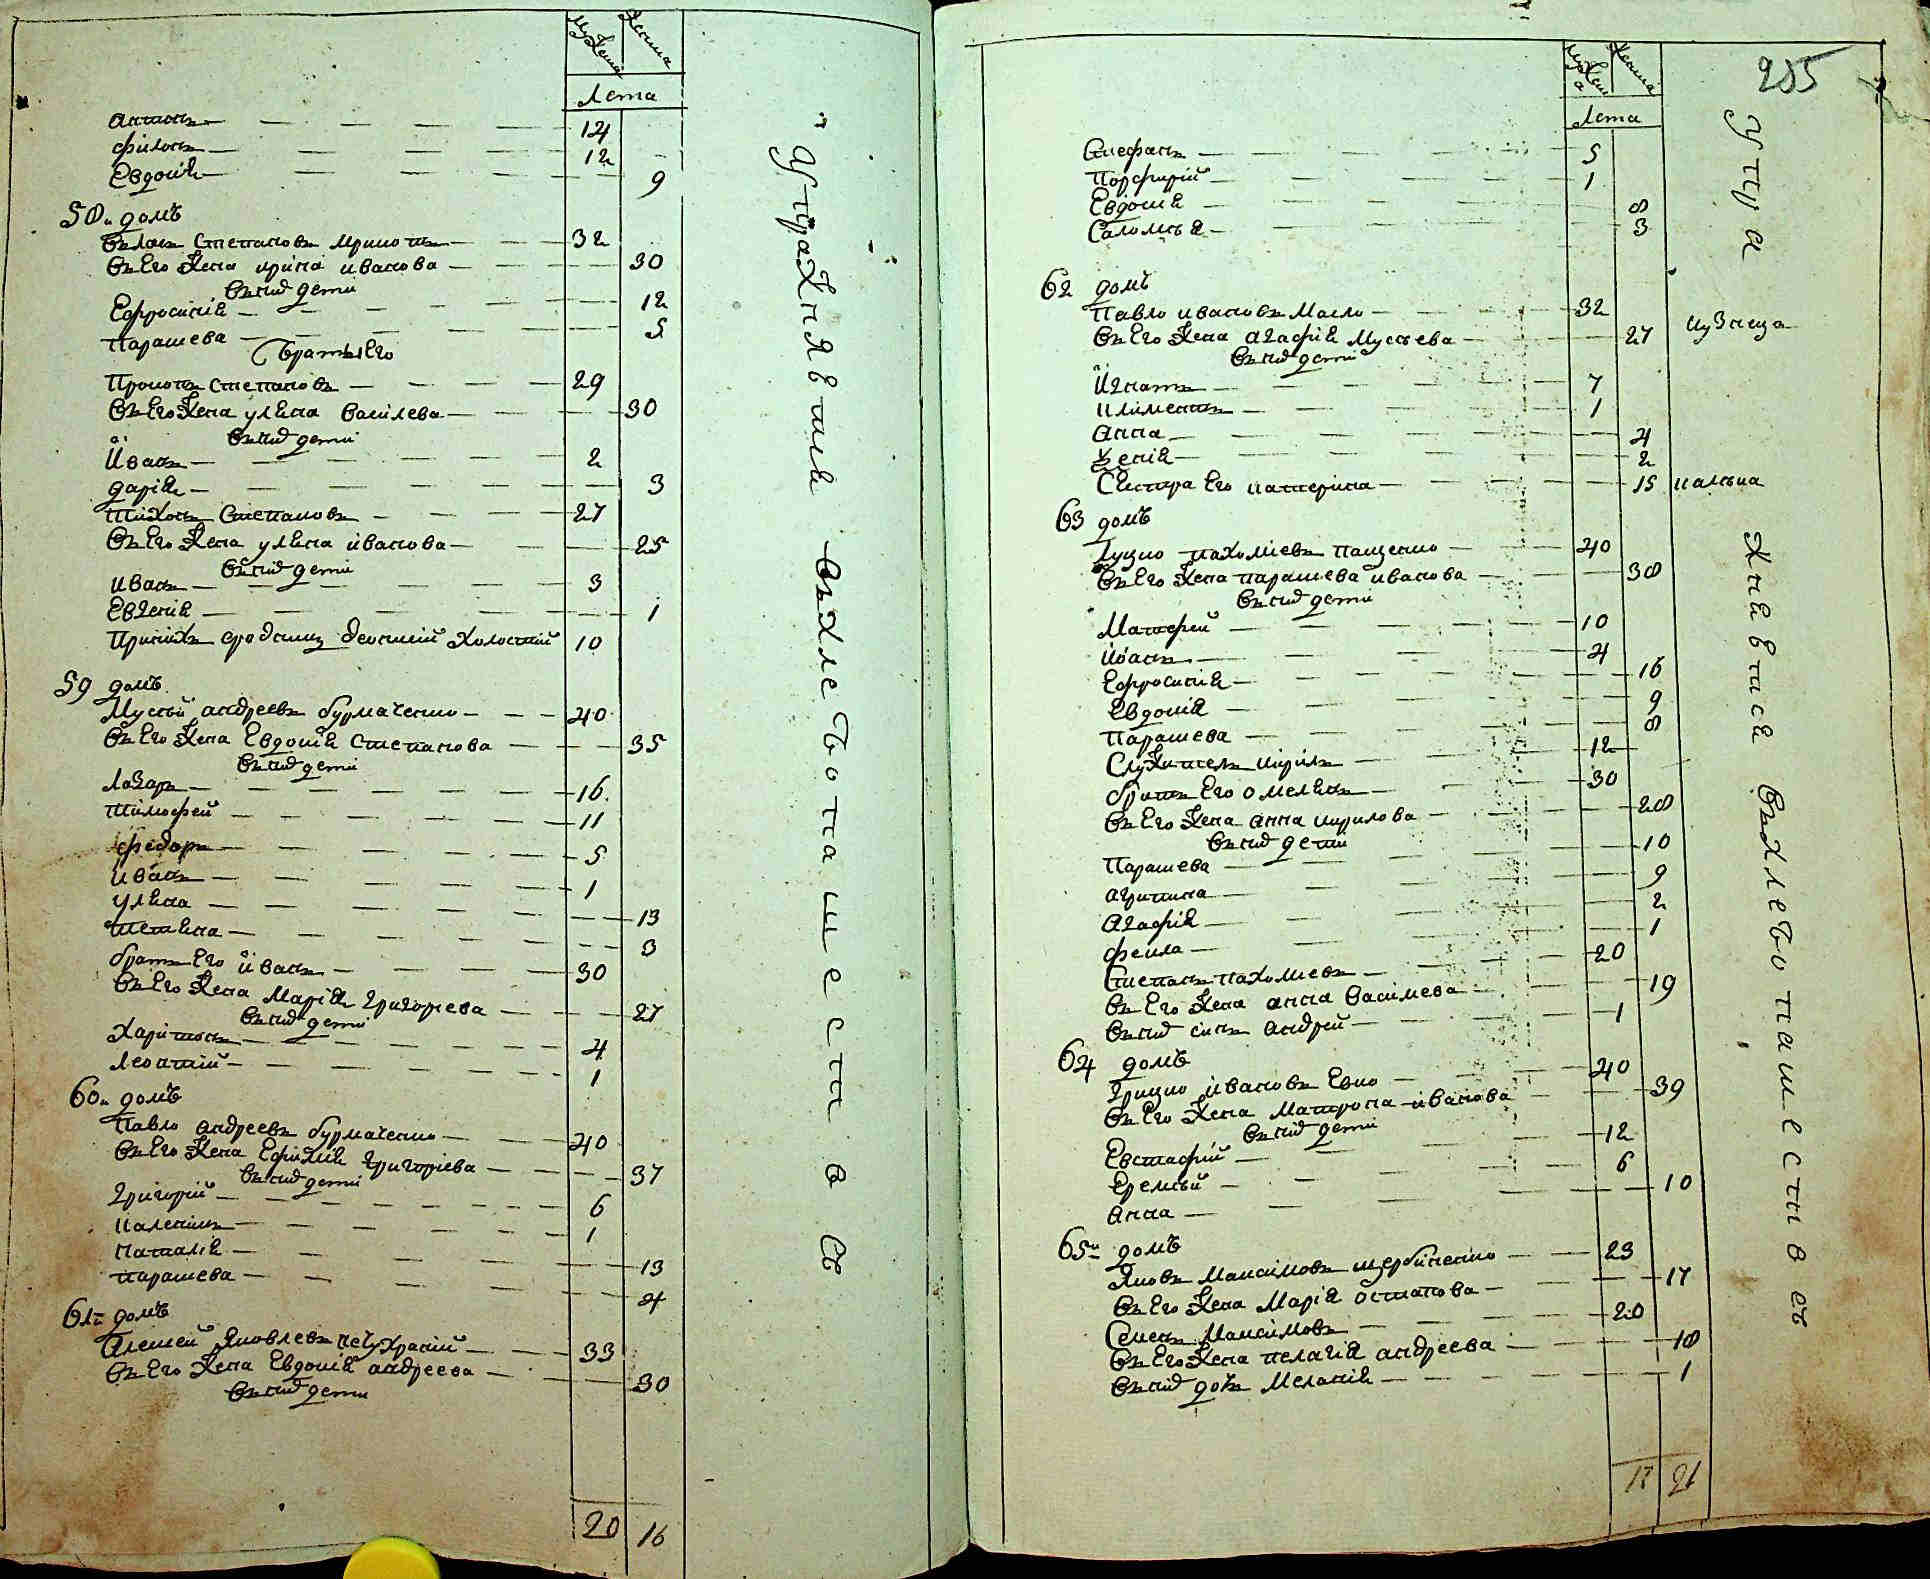 Мужска Женска
Лета
Антонъ 14
Филонъ 12
Евдокія 9
58 домъ
Степановъ 32
въ его жена Ирина Иванова 30
въ них дети
Ефросинія 12
Парасева 5
Братья его
Прокопъ Степановъ 29
въ его жена Уляна Василева 30
въ них дети
Иванъ 2
Дарія 3
Тихонъ Степановъ 27
въ его жена Уляна Иванова 25
въ них дети
Иванъ 3
Евгенія 1
холостий 10
59 домъ
Мусый Андреевъ Бурмаченко 40
въ его жена Евдокія Степанова 35
въ них дети
Лазарь 16
Тимофей 11
Федоръ 5
Иванъ 1
Уляна 13
Тетяна 3
братъ его Иванъ 30
въ его жена Марія Григоріева 27
въ них дети
Харитонъ 4
Леонтій 1
60 домъ
Павло Андреевъ Бурмаченко 40
въ его жена Ефимія Григоріева 37
въ них дети
Григорій 6
Каленикъ 1
Наталія 13
Парасева 4
61 домъ
Алексей Яковлевъ 33
въ его жена Евдокія Андреева 30
въ них дети
20 16
Упражнялися въ хлебопашествовъ
285
Мужска Женска
Лета
Стефанъ 5
Порфирій 1
Евдокія 8
Саломѣя 3
62 домъ
Павло Ивановъ Масло 32
въ его жена Агафія Мусѣева 27
въ них дети
Игнатъ 7
Климентъ 1
Анна 4
Ксенія 2
Сестра его Катерина 15
63 домъ
Луцко Пахоміевъ Пащенко 40
въ его жена Парасева Иванова 38
въ них дети
Матфей 10
Иванъ 4
Ефросинія 16
Евдокія 9
Парасева 8
Служитель Кирілъ 12
братъ его Омелянъ 30
въ его жена Анна Кирилова 28
въ них дети
Парасева 10
Агрипина 9
Агафія 2
Фекла 1
Степанъ Пахоміевъ 20
въ его жена Анна Василева 19
въ них синъ Андрей 1
64 домъ
Грицко Ивановъ Евко 40
въ его жена Матрона Иванова 39
въ них дети
Евстафій 12
Еремѣй 6
Анна 10
65 домъ
Яковъ Максимовъ Щербиненко 23
въ его жена Марія Остапова 17
Семенъ Максимовъ 20
въ его жена Пелагія Андреева 18
въ них дочь Меланія 1
17 21
Упра жнявлися въ хлебопашествевъ